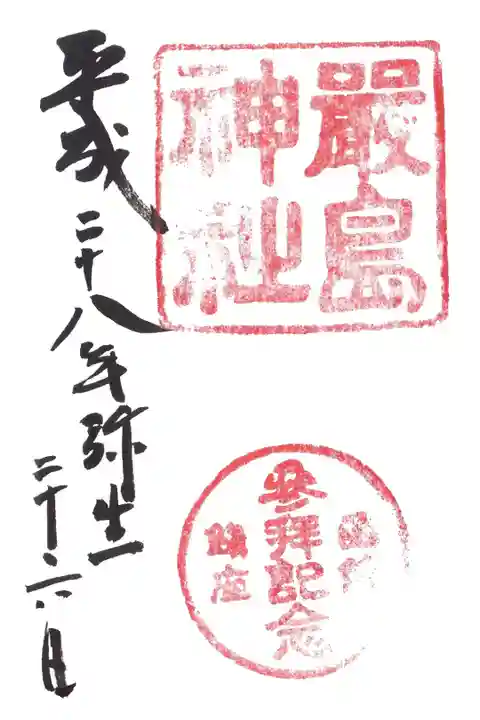 嚴島
神社
参拝記念
平成二十八年弥生
二十六日